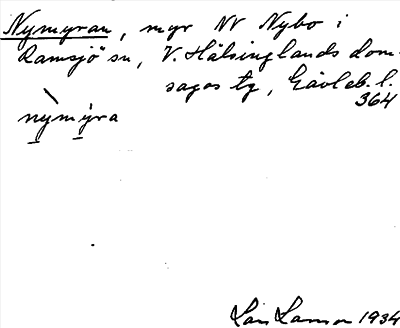 Nymyran, myr NV Nybo i
Ramsjö sn, V. Hälsinglands dom-
sagas tg, Gävleb. l.
364
nỳmýra
1934